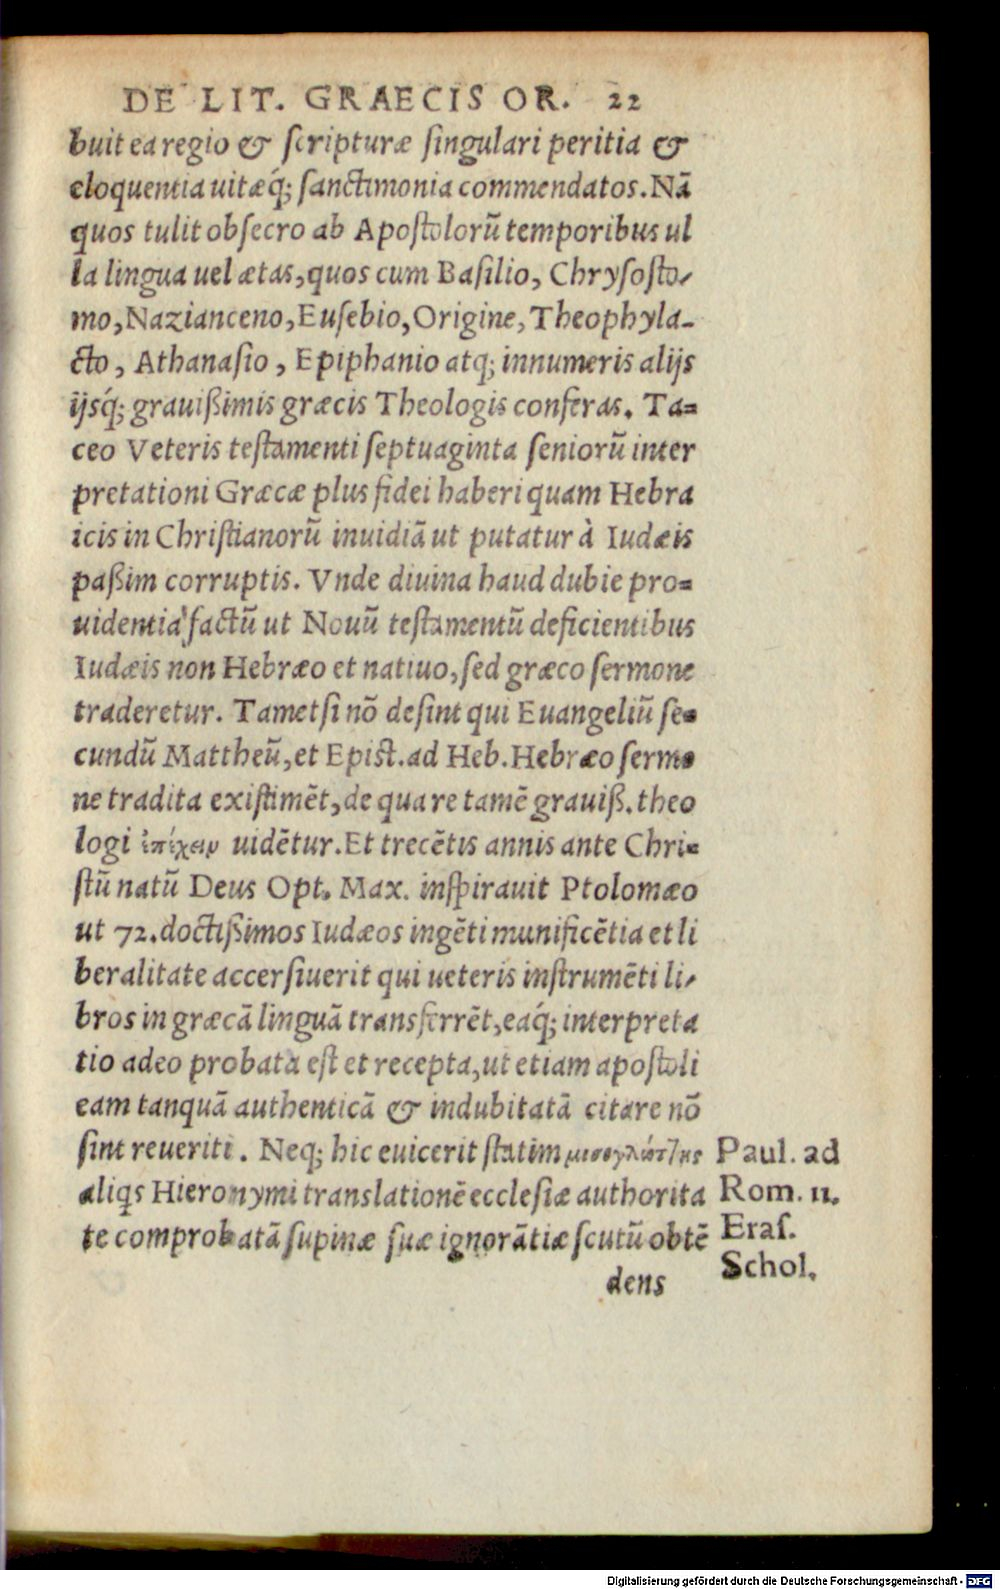 DE LIT. GRAECIS OR. 22
buit ea regio & scripturæ singulari peritia &
eloquentia uitæq́; sanctimonia commendatos. Nã
quos tulit obsecro ab Apostolorũ temporibus ul
la lingua uel ætas, quos cum Basilio, Chrysosto-
mo, Nazianceno, Eusebio, Origine, Theophyla-
cto, Athanasio, Epiphanio atq; innumeris alijs
ijsq́; grauißimis græcis Theologis conferas. Ta=
ceo Veteris testamenti septuaginta seniorũ inter
pretationi Græcæ plus fidei haberi quam Hebra
icis in Christianorũ inuidiã ut putatur à Iudæis
paßim corruptis. Vnde diuina haud dubie pro=
uidentia factũ ut Nouũ testamentũ deficientibus
Iudæis non Hebræo et natiuo, sed græco sermone
traderetur. Tametsi nõ desint qui Euangeliũ se=
cundũ Mattheũ, et Epist. ad Heb. Hebræo sermo
ne tradita existimẽt, de qua re tamẽ grauiß. theo
logi ἐπέχειν uidẽtur. Et trecẽtis annis ante Chri=
stũ natũ Deus Opt. Max. inspirauit Ptolomæo
ut 72. doctißimos Iudæos ingẽti munificẽtia et li
beralitate accersiuerit qui ueteris instrumẽti li-
bros in græcã linguã transferrẽt, eaq́; interpreta
tio adeo probata est et recepta, ut etiam apostoli
eam tanquã authenticã & indubitatã citare nõ
sint reueriti. Neq; hic euicerit statim μισογλώττης
aliqs Hieronymi translationẽ ecclesiæ authorita
te comprobatã supinæ suæ ignorãtiæ scutũ obtẽ
dens
Paul. ad
Rom. 11.
Eras.
Schol.
Digitalisierung gefördert durch die Deutsche Forschungsgemeinschaft - DFG